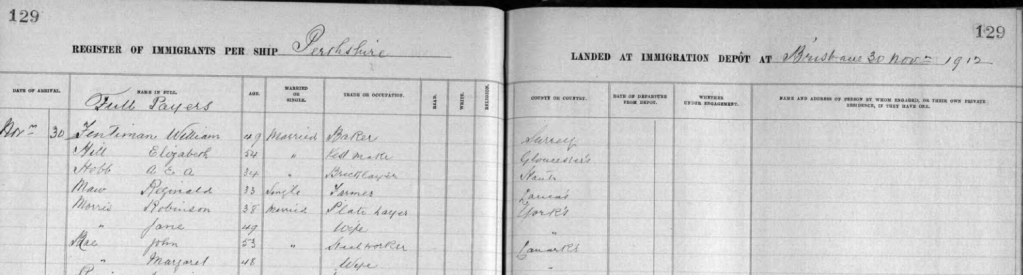 129
129
REGISTER OF IMMIGRANTS PER SHIP Perthshire
LANDED AT IMMIGRATION DEPÔT AT Brisbane 30 Novr 1912
DATE OF ARRIVAL. NAME IN FULL. AGE. MARRIED OR SINGLE. TRADE OR OCCUPATION. READ. WRITE. RELIGION. COUNTY OR COUNTRY. DATE OF DEPARTURE FROM DEPOT. WHETHER UNDER ENGAGEMENT. NAME AND ADDRESS OF PERSON BY WHOM ENGAGED, OR THEIR OWN PRIVATE RESIDENCE, IF THEY HAVE ONE.
Full Payers
Novr 30 Fentiman William 49 Married Baker Surrey
Hill Elizabeth 54 " maker Gloucester's
Hobb A E A 34 " Bricklayer Hants
Maw Reginald 33 Single Farmer Lanca's
Morris Robinson 38 Married Plate Layer York's
" Jane 49 Wife "
Rae John 53 " Steelworker Lanark's
" Margaret 48 Wife "